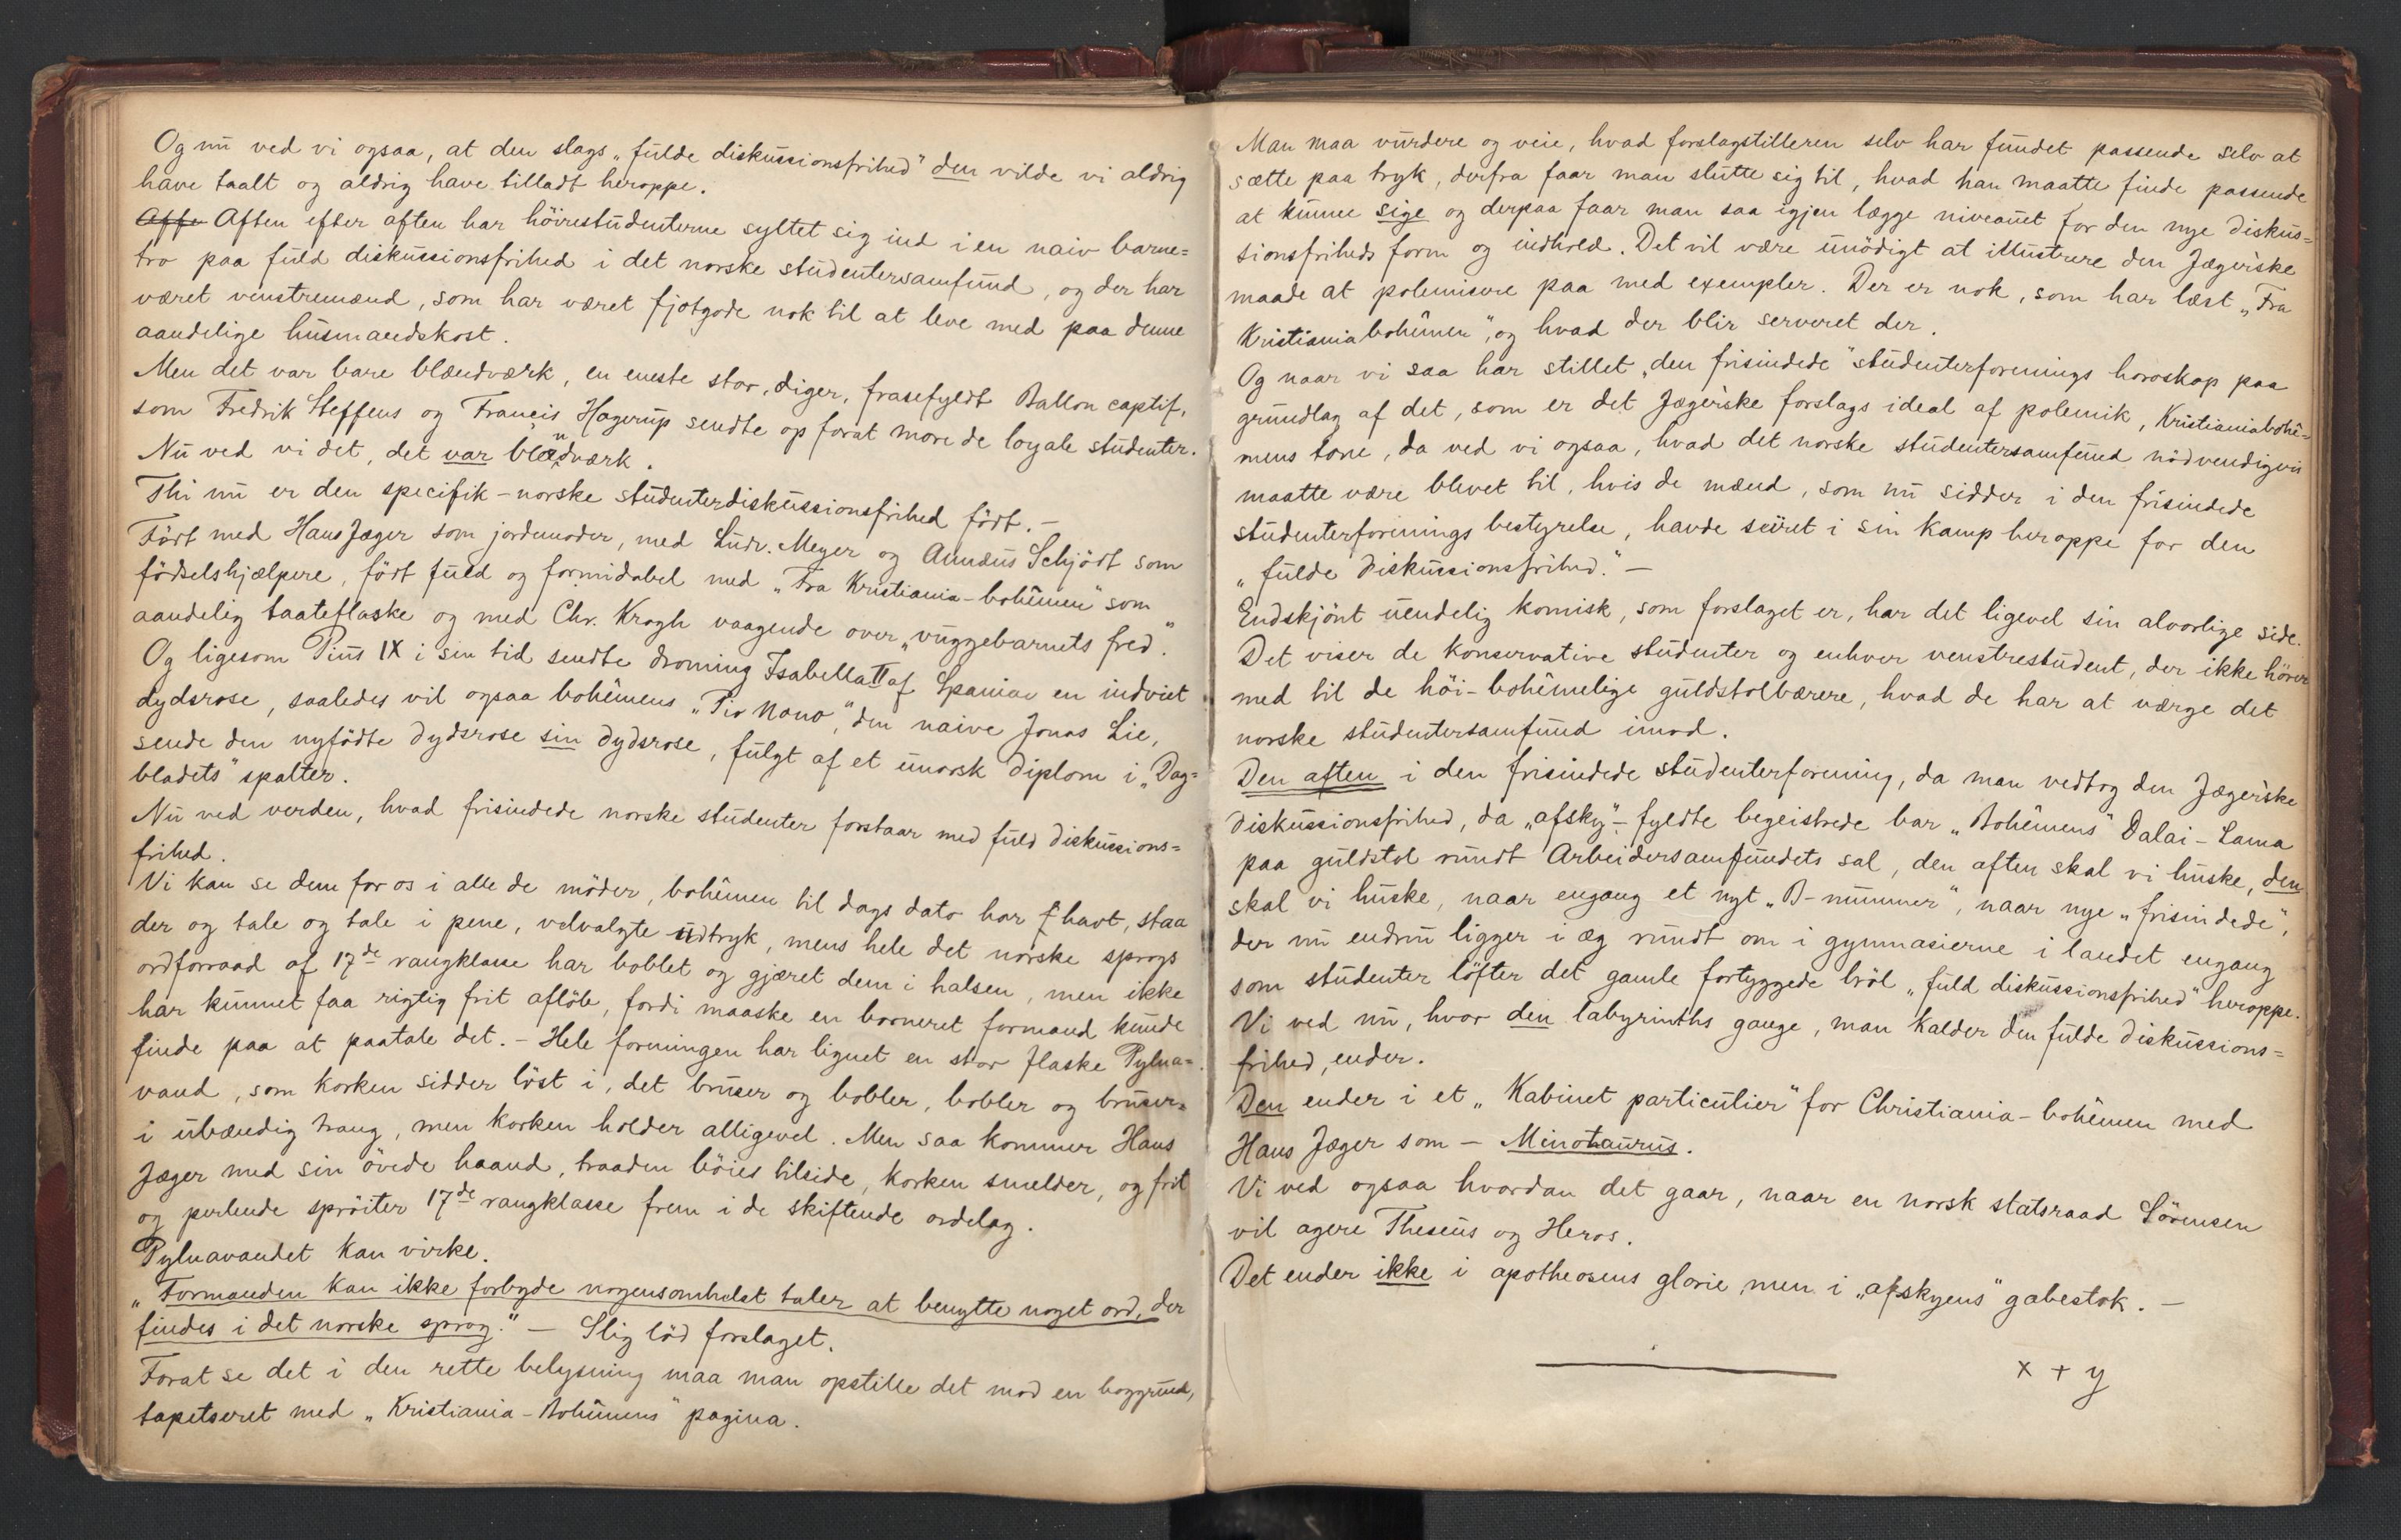 Og nu ved vi ogsaa, at den slags „fulde diskussionsfrihed" den vilde vi aldrig
have taalt og aldrig have tilladt heroppe.
Affe Aften efter aften har höirestudenterne syltet sig ind i en naiv barne=
tro paa fuld diskussionsfrihed i det norske studentersamfund, og der har
været venstremænd, som har været fjotgode nok til at leve med paa denne
aandelige husmandskost.
Men det var bare blændværk, en eneste stor, diger, frasefyldt Ballon captif,
som Fredrik Steffens og Francis Hagerup sendte op forat more de loyale studenter.
Nu ved vi det, det var blændværk.
Thi nu er den specifik-norske studenterdiskussionsfrihed födt.—
Födt med Hans Jæger som jordmoder, med Ludv. Meyer og Annæus Schjödt som
födselshjælpere, födt fuld og formidabel med „Fra Kristiania-bohêmen" som
aandelig taateflaske og med Chr. Krogh vaagende over „vuggebarnets fred."
Og ligesom Pius IX i sin tid sendte droning Isabella II af Spanien en indviet
dydsrose, saaledes vil ogsaa bohêmens „Pio Nono," den naive Jonas Lie,
sende den nyfödte dydsrose sin dydsrose, fulgt af et unorsk diplom i „Dag=
bladets" spalter.
Nu ved verden, hvad frisindede norske studenter forstaar med fuld diskussions=
frihed.
Vi kan se dem for os i alle de möder, bohêmen til dags dato har havt, staa
der og tale og tale i pene, velvalgte udtryk, mens hele det norske sprogs
ordforraad af 17de rangklasse har boblet og gjæret dem i halsen, men ikke
har kunnet faa rigtig frit aflöb, fordi maaske en borneret formand kunde
finde paa at paatale det. - Hele foreningen har lignet en stor flaske Pylna=
vand, som korken sidder löst i, det bruser og bobler, bobler og bruser
i ubændig trang, men korken holder alligevel. Men saa kommer Hans
Jæger med sin övede haand, traaden böies tilside, korken smelder, og frit
og perlende spröiter 17de rangklasse frem i de skiftende ordelag.
Pylnavandet kan virke.
„Formanden kan ikke forbyde nogensomhelst taler at benytte noget ord, der
findes i det norske sprog." — Slig löd forslaget.
Forat se det i den rette belysning maa man opstille det mod en baggrund,
tapetseret med „Kristiania-Bohêmens" pagina.
Man maa vurdere og veie, hvad forslagstilleren selv har fundet passende selv at
sætte paa tryk, derfra faar man slutte sig til, hvad han maatte finde passende
at kunne sige og derpaa faar man saa igjen lægge niveauet for den nye diskus=
sionsfriheds form og indhold. Det vil være unödigt at illustrere den Jægerske
maade at polemisere paa med exempler. Der er nok, som har læst „Fra
Kristianiabohêmen", og hvad der blir serveret der.
Og naar vi saa har stillet „den frisindede" studenterforenings horoskop paa
grundlag af det, som er det Jægerske forslags ideal af polemik, Kristianiabohê=
mens tone, da ved vi ogsaa, hvad det norske studentersamfund nödvendigvis
maatte være blevet til, hvis de mænd, som nu sidder i den frisindede
studenterforenings bestyrelse, havde seiret i sin kamp heroppe for den
„fulde diskussionsfrihed." —
Endskjönt uendelig komisk, som forslaget er, har det ligevel sin alvorlige side.
Det viser de konservative studenter og enhver venstrestudent, der ikke hörer
med til de höi-bohêmelige guldstolbærere, hvad de har at værge det
norske studentersamfund imod.
Den aften i den frisindede studenterforening, da man vedtog den Jægerske
diskussionsfrihed, da „afsky"-fyldte begeistrede bar „Bohêmens" Dalai-Lama
paa guldstol rundt Arbeidersamfundets sal, den aften skal vi huske, den
skal vi huske, naar engang et nyt „B-nummer", naar nye „frisindede",
der nu endnu ligger i æg rundt om i gymnasierne i landet engang
som studenter löfter det gamle fortyggede bröl „fuld diskussionsfrihed" heroppe.
Vi ved nu, hvor den labyrinths gange, man kalder den fulde diskussions=
frihed, ender.
Den ender i et „Kabinet particulier" for Christiania-bohêmen med
Hans Jæger som — Minotaurus.
Vi ved ogsaa hvordan det gaar, naar en norsk statsraad Sörensen
vil agere Theseus og Heros.
Det ender ikke i apotheosens glorie men i „afskyens" gabestok. —
x + y